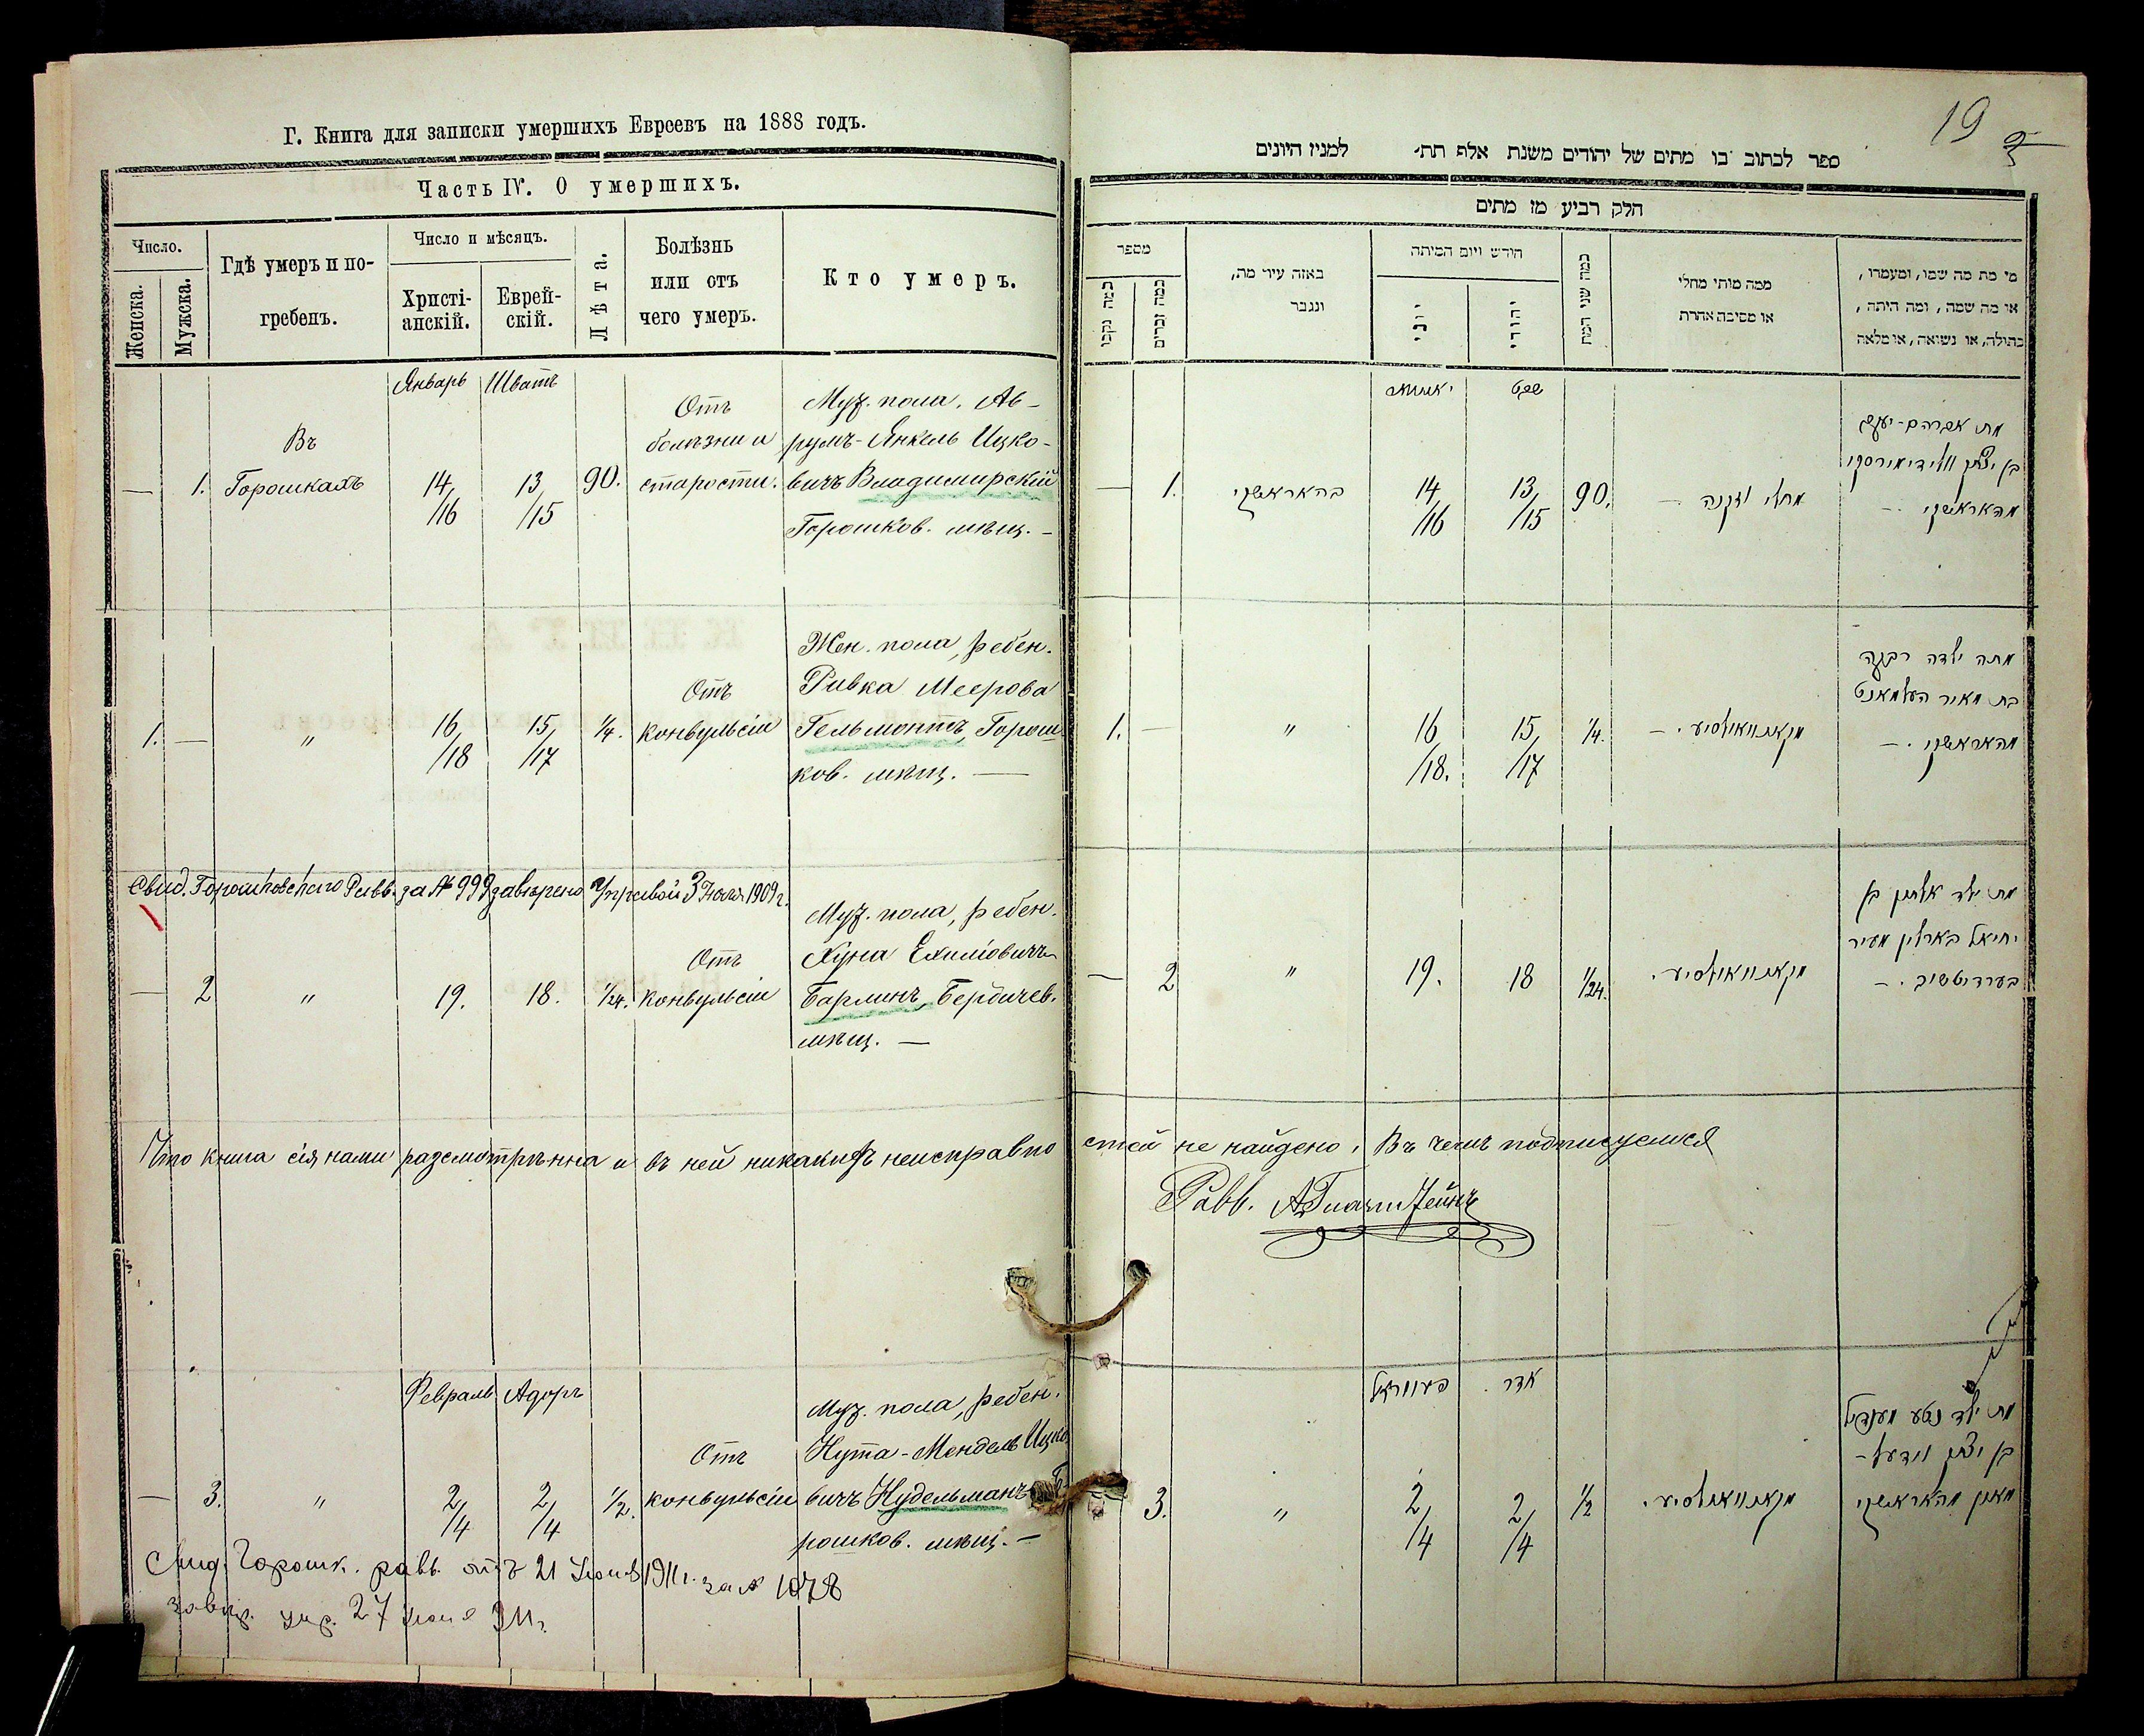 Г. Книга для записки умершихъ Евреевъ на 1888 годъ.
Часть IV. О умершихъ.
Число.
Женска.
Мужеска.
Гдѣ умеръ и по-
гребенъ.
Число и мѣсяцъ.
Христі-
анскій.
Еврей-
скій.
Лѣта.
Болѣзнь
или отъ
чего умеръ.
Кто умеръ.
Январь Шватъ
— 1. Въ
Горошкахъ
14/16 13/15 90.
Отъ
болѣзни и
старости.
Муж. пола. Ав-
румъ-Янкель Ицко-
вичъ Владимирскій
Горошков. мѣщ. —
1. — " 16/18 15/17 1/4.
Отъ
конвульсіи
Жен. пола, ребен.
Ривка Меерова
Гельмонтъ, Горош
ков. мѣщ. —
Свид. Горошковскаго Равв. за № 999 завѣрено Управой 3 1909 г.
— 2 " 19. 18. 1/24.
Отъ
конвульсіи
Муж. пола, ребен.
Хуна Ехиліовичъ
Барлинъ, Бердичев.
мѣщ. —
Что книга сія нами разсмотрѣнна и въ ней никакихъ неисправно
Февраль Адоръ
— 3. " 2/4 2/4 1/2.
Отъ
конвульсіи
Муж. пола, ребен.
Нута-Мендель Ицко
вичъ Нудельманъ
рошков. мѣщ. —
Свид. Горошк. равв. отъ 21 1911 г. за № 1078
завѣр. упр. 27 911 г.
19
ספר לכתוב בו מתים של יהודים משנת אלף תת׳ למנין היונים
חלק רביע מן מתים
מספר
כמה נקבו
כמה זכרים
באזה עיר מת,
ונגבר
חודש ויום המיתה
יוני
יהודי
כמה שני המת
ממה מותי מחלי
או מסיבה אחרת
מי מת מה שמו, ומעמרו,
או מה שמה, ומה היתה,
בתולה, או נשואה, או מלאה
שבט
— 1. בהאראשקי 14/16 13/15 90.
מחלי וזקנה —
מת אברהם-יעקב
בן יצחק וולידימירסקי
מהאראשקי —
1. — " 16/18. 15/17 1/4.
מקאנוואולסיע. —
מתה ילדה רבקה
בת מאיר העלמאנט
מהאראשקי. —
— 2 " 19. 18 1/24.
מקאנוואולסיע.
מת ילד אלחנן בן
יחיאל בארלין מעיר
בערדיטשוב. —
стей не найдено, Въ чемъ подписуемся
Равв. А. Глазштейнъ
פעווראל אדר
3. " 2/4 2/4 1/2
מקאנוואולסיע.
מת ילד נטע מענדיל
בן יצחק נודעל-
מאן מהאראשקי